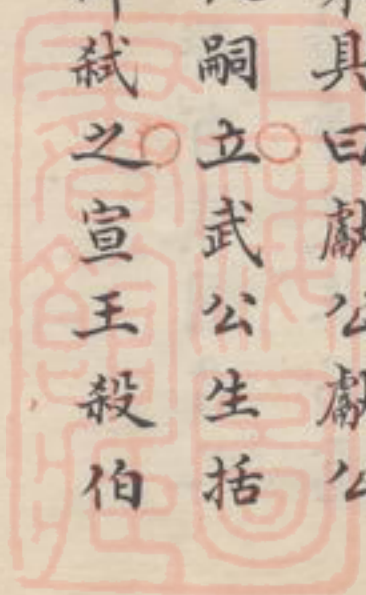 具曰獻公獻公
嗣立武公生括
弒之宣王殺伯